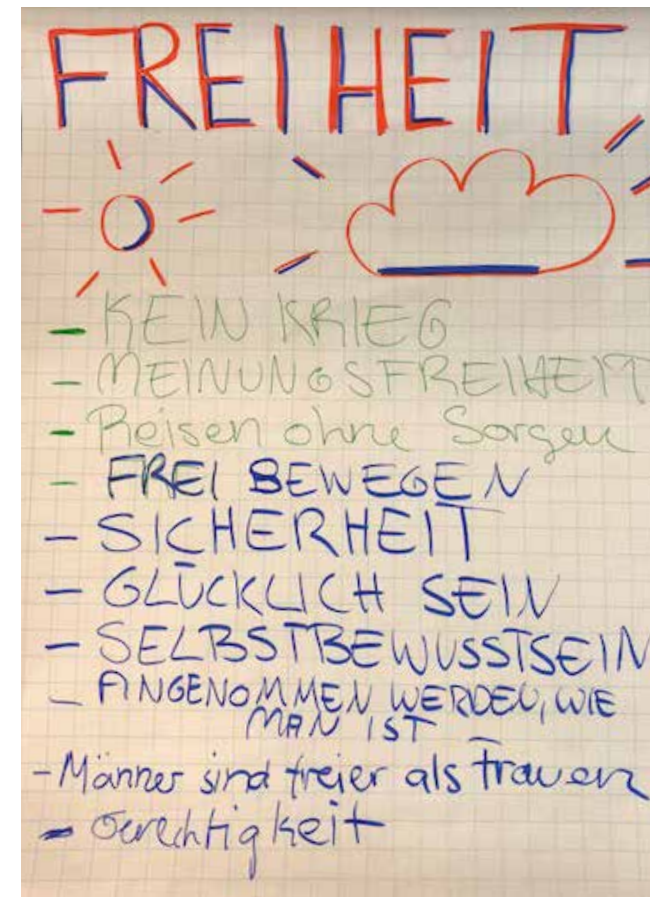 FREIHEIT
- KEIN KRIEG
- MEINUNGSFREIHEIT
- Reisen ohne Sorgen
- FREI BEWEGEN
- SICHERHEIT
- GLÜCKLICH SEIN
- SELBSTBEWUSSTSEIN
- ANGENOMMEN WERDEN, WIE
MAN IST
- Männer sind freier als Frauen
- Gerechtigkeit